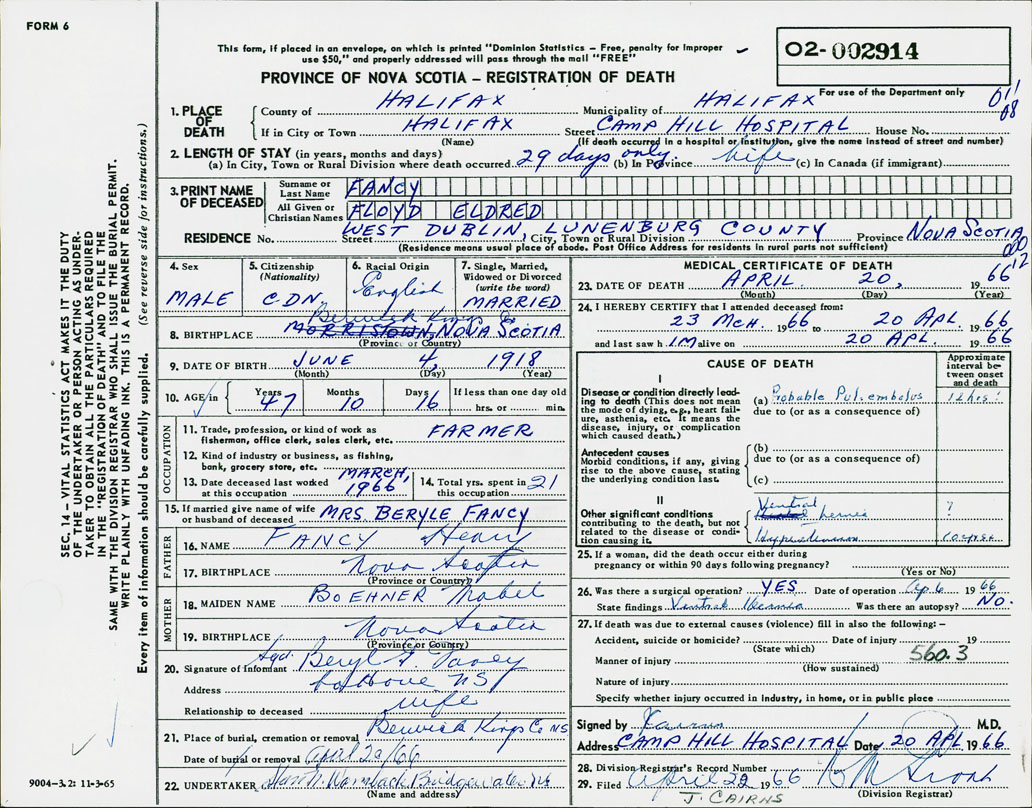 FORM 6
This form, if placed in an envelope, on which is printed "Dominion Statistics – Free, penalty for improper
use $50," and properly addressed will pass through the mail "FREE"
02-002914
PROVINCE OF NOVA SCOTIA – REGISTRATION OF DEATH
For use of the Department only
011
08
1. PLACE OF DEATH
County of HALIFAX Municipality of HALIFAX
If in City or Town HALIFAX Street CAMP HILL HOSPITAL House No.
(Name) (If death occurred in a hospital or institution, give the name instead of street and number)
2. LENGTH OF STAY (in years, months and days)
(a) In City, Town or Rural Division where death occurred 29 days only (b) In Province life (c) In Canada (if immigrant)
3. PRINT NAME OF DECEASED
Surname or Last Name FANCY
All Given or Christian Names FLOYD ELDRED
RESIDENCE No. Street WEST DUBLIN, LUNENBURG COUNTY City, Town or Rural Division Province NOVA SCOTIA
(Residence means usual place of abode. Post Office Address for residents in rural parts not sufficient)
000
12
4. Sex MALE
5. Citizenship (Nationality) CDN.
6. Racial Origin English
7. Single, Married, Widowed or Divorced (write the word) MARRIED
Berwick Kings Co
8. BIRTHPLACE MORRISTOWN, NOVA SCOTIA
(Province or Country)
9. DATE OF BIRTH JUNE 4, 1918
(Month) (Day) (Year)
10. AGE in Years 47 Months 10 Days 16 If less than one day old hrs. or min.
OCCUPATION
11. Trade, profession, or kind of work as fisherman, office clerk, sales clerk, etc. FARMER
12. Kind of industry or business, as fishing, bank, grocery store, etc.
13. Date deceased last worked at this occupation MARCH, 1966
14. Total yrs. spent in this occupation 21
15. If married give name of wife or husband of deceased MRS. BERYLE FANCY
FATHER
16. NAME FANCY Henry
17. BIRTHPLACE Nova Scotia
(Province or Country)
MOTHER
18. MAIDEN NAME BOEHNER Mabel
19. BIRTHPLACE Nova Scotia
(Province or Country)
20. Signature of Informant Sgd. Beryl F. Fancy
Address NS
Relationship to deceased wife
21. Place of burial, cremation or removal Berwick Kings Co NS
Date of burial or removal April 20/66
22. UNDERTAKER Bridgewater NS
(Name and address)
MEDICAL CERTIFICATE OF DEATH
23. DATE OF DEATH APRIL 20, 1966
(Month) (Day) (Year)
24. I HEREBY CERTIFY that I attended deceased from:
23 MCH. 1966 to 20 APL. 1966
and last saw h IM alive on 20 APL. 1966
CAUSE OF DEATH
Approximate interval between onset and death
I
Disease or condition directly leading to death (This does not mean the mode of dying, e.g., heart failure, asthenia, etc. It means the disease, injury, or complication which caused death.)
(a) Probable Pul. embolus 12 hrs.
due to (or as a consequence of)
Antecedent causes
Morbid conditions, if any, giving rise to the above cause, stating the underlying condition last.
(b)
due to (or as a consequence of)
(c)
II
Other significant conditions contributing to the death, but not related to the disease or condition causing it.
Ventral hernia ?
Hypertension
25. If a woman, did the death occur either during pregnancy or within 90 days following pregnancy?
(Yes or No)
26. Was there a surgical operation? YES Date of operation Ap 6 1966
State findings Ventral Hernia Was there an autopsy? NO.
27. If death was due to external causes (violence) fill in also the following: –
Accident, suicide or homicide? Date of injury 19
(State which)
560.3
Manner of injury
(How sustained)
Nature of injury
Specify whether injury occurred in industry, in home, or in public place
Signed by M.D.
Address CAMP HILL HOSPITAL Date 20 APL 1966
28. Division Registrar's Record Number
29. Filed April 22 1966
(Division Registrar)
J. CAIRNS
SEC. 14 – VITAL STATISTICS ACT MAKES IT THE DUTY
OF THE UNDERTAKER OR PERSON ACTING AS UNDER-
TAKER TO OBTAIN ALL THE PARTICULARS REQUIRED
IN THE "REGISTRATION OF DEATH" AND TO FILE THE
SAME WITH THE DIVISION REGISTRAR WHO SHALL ISSUE THE BURIAL PERMIT.
WRITE PLAINLY WITH UNFADING INK. THIS IS A PERMANENT RECORD.
Every item of information should be carefully supplied. (See reverse side for instructions.)
9004-3.2: 11-3-65